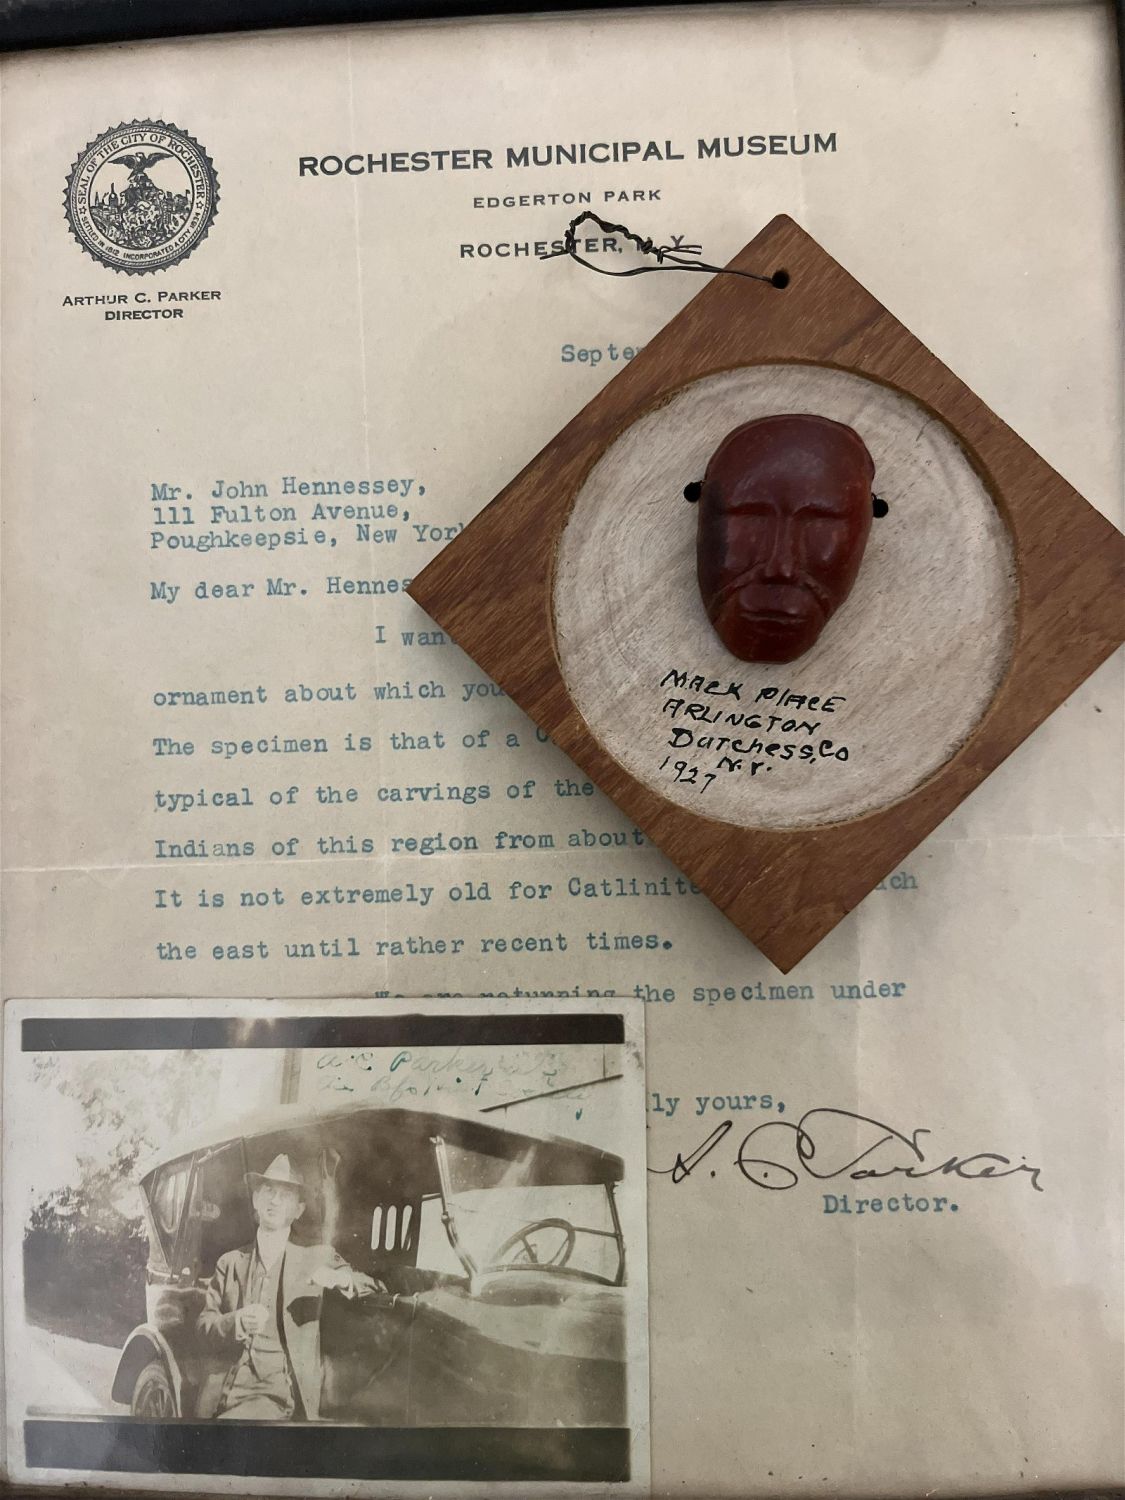 SEAL OF THE CITY OF ROCHESTER
SETTLED IN 1812 INCORPORATED A CITY 1834
ARTHUR C. PARKER
DIRECTOR
ROCHESTER MUNICIPAL MUSEUM
EDGERTON PARK
ROCHESTER, N. Y.
Septe
Mr. John Hennessey,
111 Fulton Avenue,
Poughkeepsie, New York
My dear Mr. Hennes
I wan
ornament about which you
The specimen is that of a C
typical of the carvings of the
Indians of this region from about
It is not extremely old for Catlinite ch
the east until rather recent times.
We are returning the specimen under
ly yours,
A. C. Parker
Director.
MACK PLACE
ARLINGTON
Dutchess, Co
N.Y.
1927
A C Parker